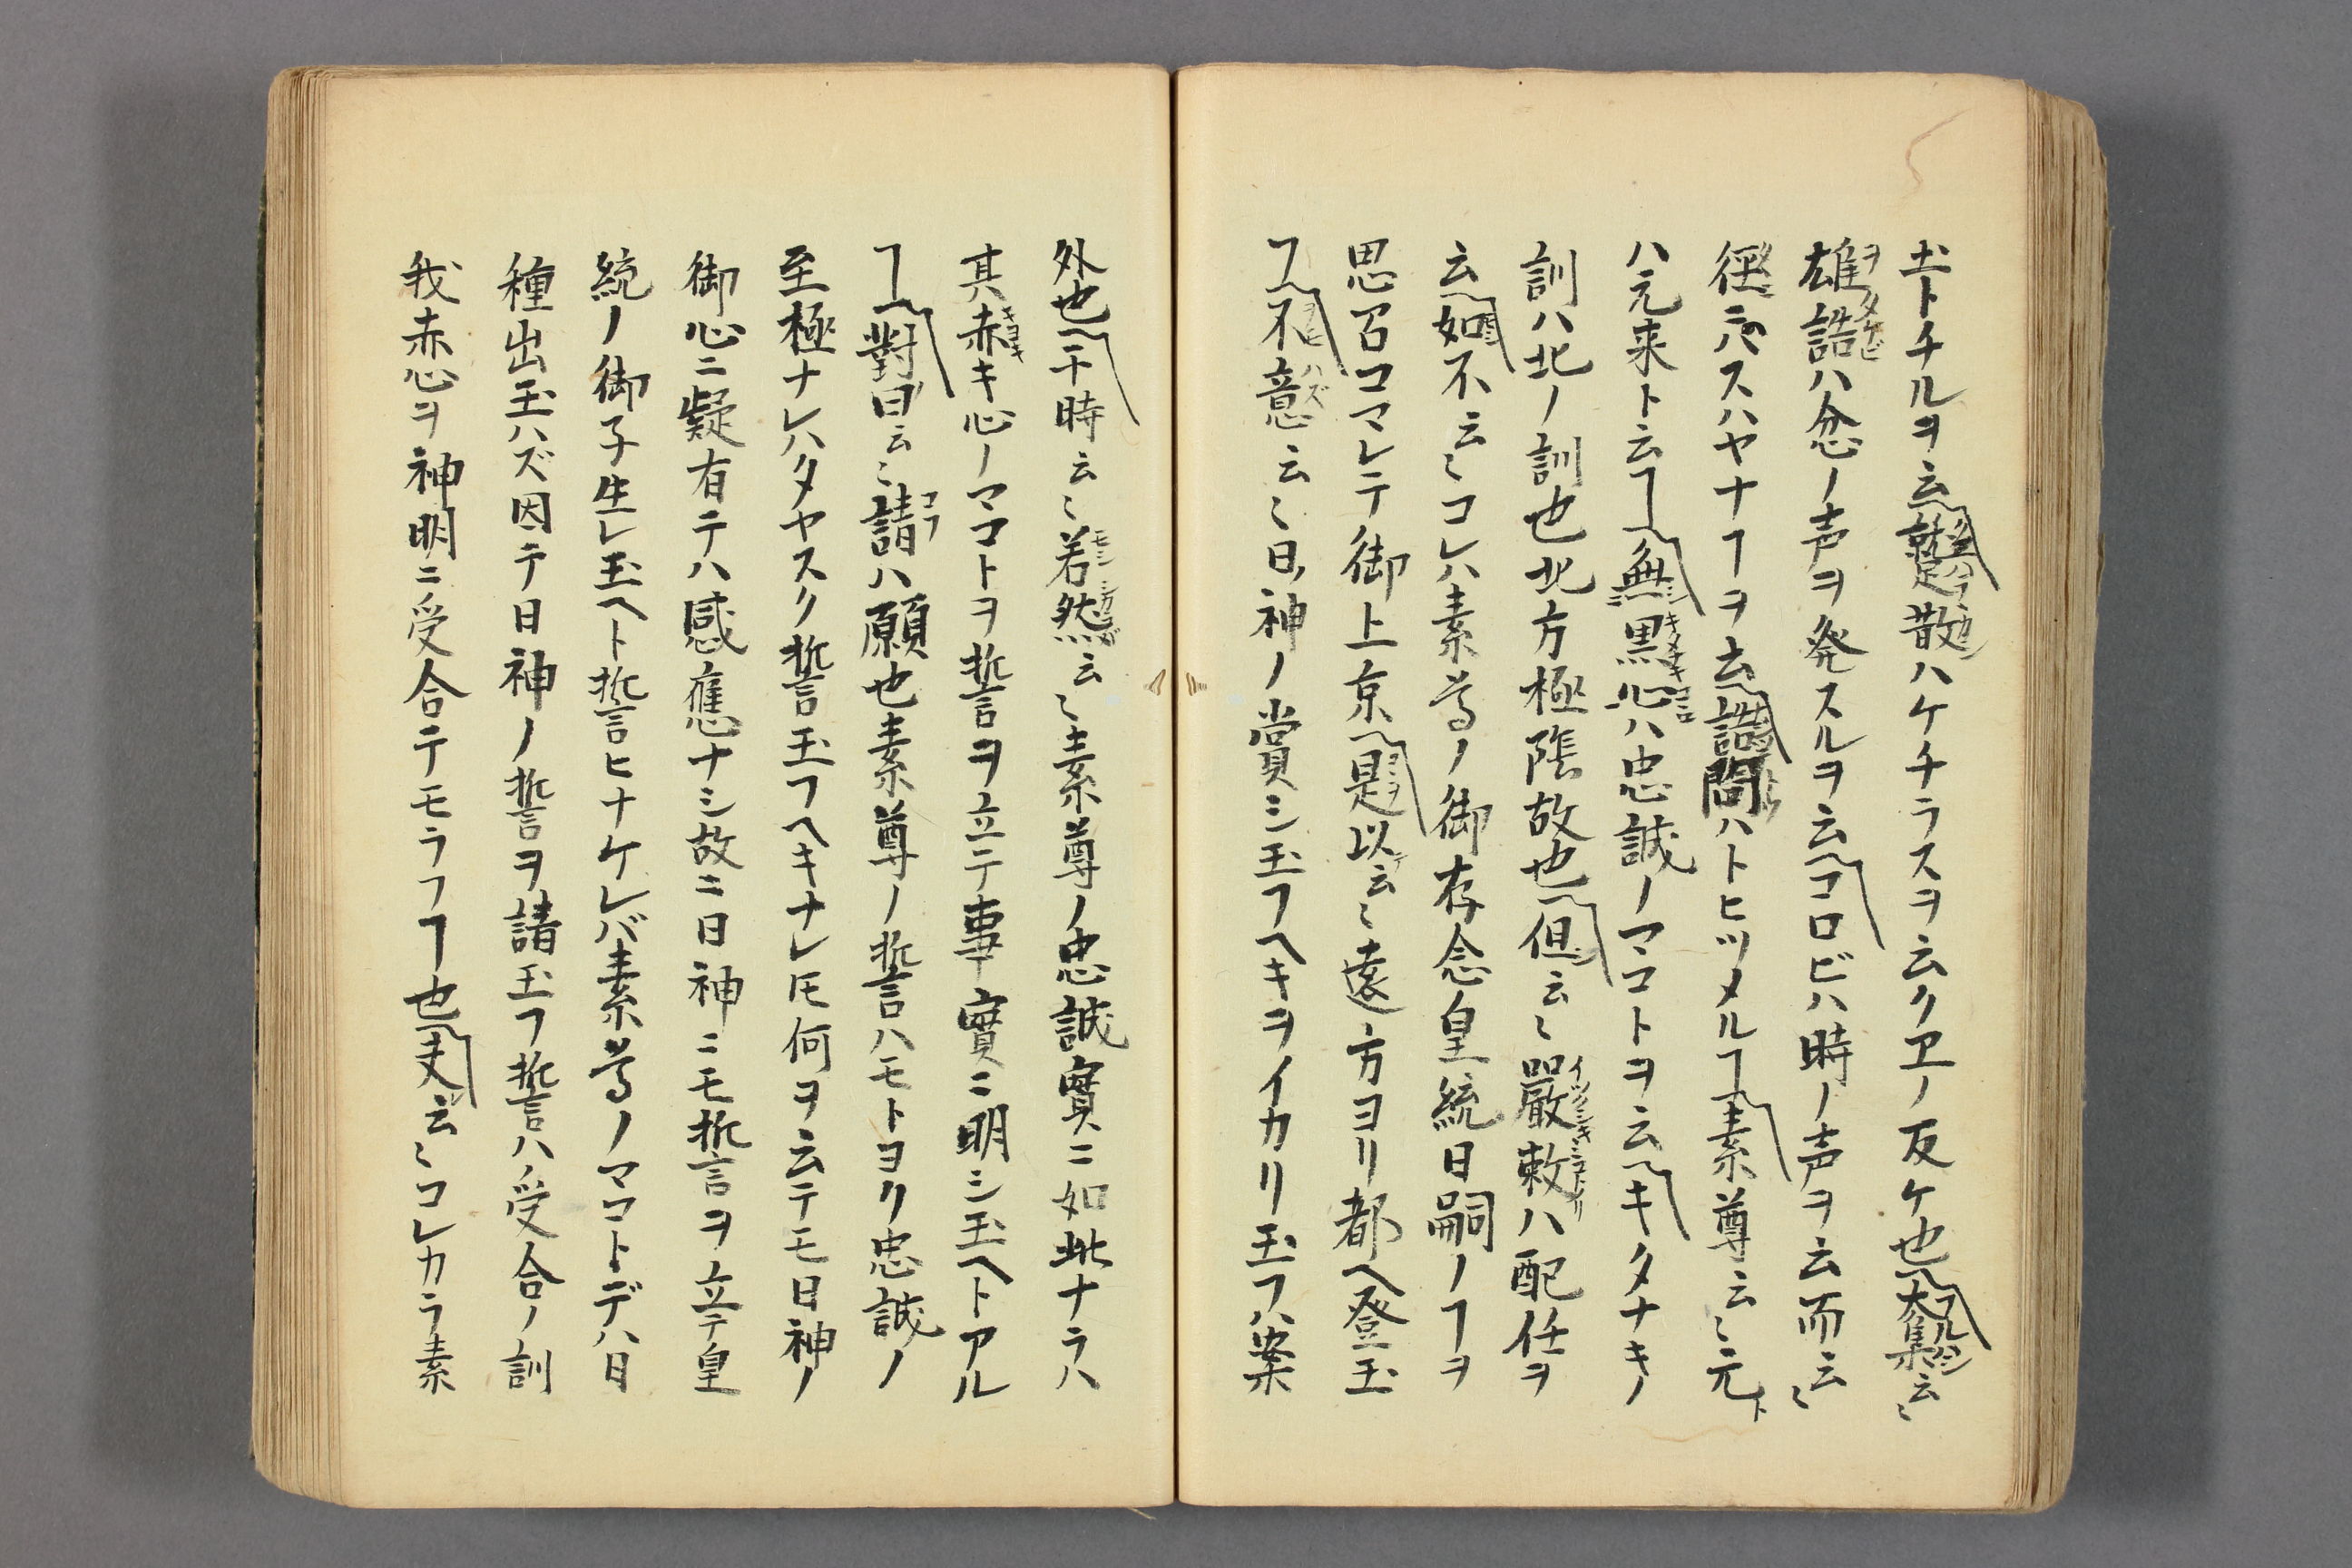 ホトチルヲ云蹴散ハケチラスヲ云クヱノ反ケ也大集云〻
雄誥ハ忿ノ声ヲ発スルヲ云コロビハ時ノ声ヲ云而云〻
徑ニハスハヤナヿヲ云詰問ハトヒツメルヿ素尊云〻元ト
ハ元来ト云ヿ無黒心ハ忠誠ノマコトヲ云キタナキノ
訓ハ北ノ訓也北方極陰故也但云〻嚴敕ハ配任ヲ
云如不云〻コレハ素尊ノ御存念皇統日嗣ノヿヲ
思召コマレテ御上京是以云〻遠方ヨリ都ヘ登玉
フ不意云〻日神ノ賞シ玉フヘキヲイカリ玉フハ案
外也于時云〻若然云〻素尊ノ忠誠實ニ如此ナラハ
其赤キ心ノマコトヲ誓ヲ立テ事實ニ明シ玉ヘトアル
ヿ對曰云〻請ハ願也素尊ノ誓ハモトヨリ忠誠ノ
至極ナレハタヤスク誓玉フヘキナレ𪜈何ヲ云テモ日神ノ
御心ニ疑有テハ感應ナシ故ニ日神ニモ誓ヲ立テ皇
統ノ御子生レ玉ヘト誓ヒナケレバ素尊ノマコトデハ日
種出玉ハズ因テ日神ノ誓ヲ請玉フ誓ハ受合ノ訓
我赤心ヲ神明ニ受合テモラフヿ也夫云〻コレカラ素